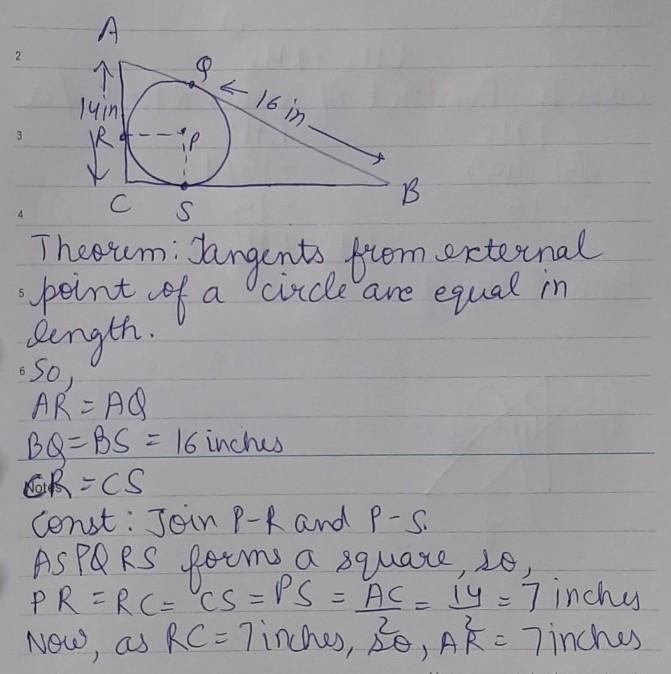 A
2
Q
← 16 in →
14in
3
R
P
C
S
B
4
Theorem: Tangents from external
5
point of a circle are equal in
length.
6
So,
AR = AQ
BQ = BS = 16 inches
Notes
CR = CS
Const: Join P-R and P-S.
ASPQRS forms a square, so,
PR = RC = CS = PS = AC/2 = 14/2 = 7 inches
Now, as RC = 7 inches, so, AR = 7 inches